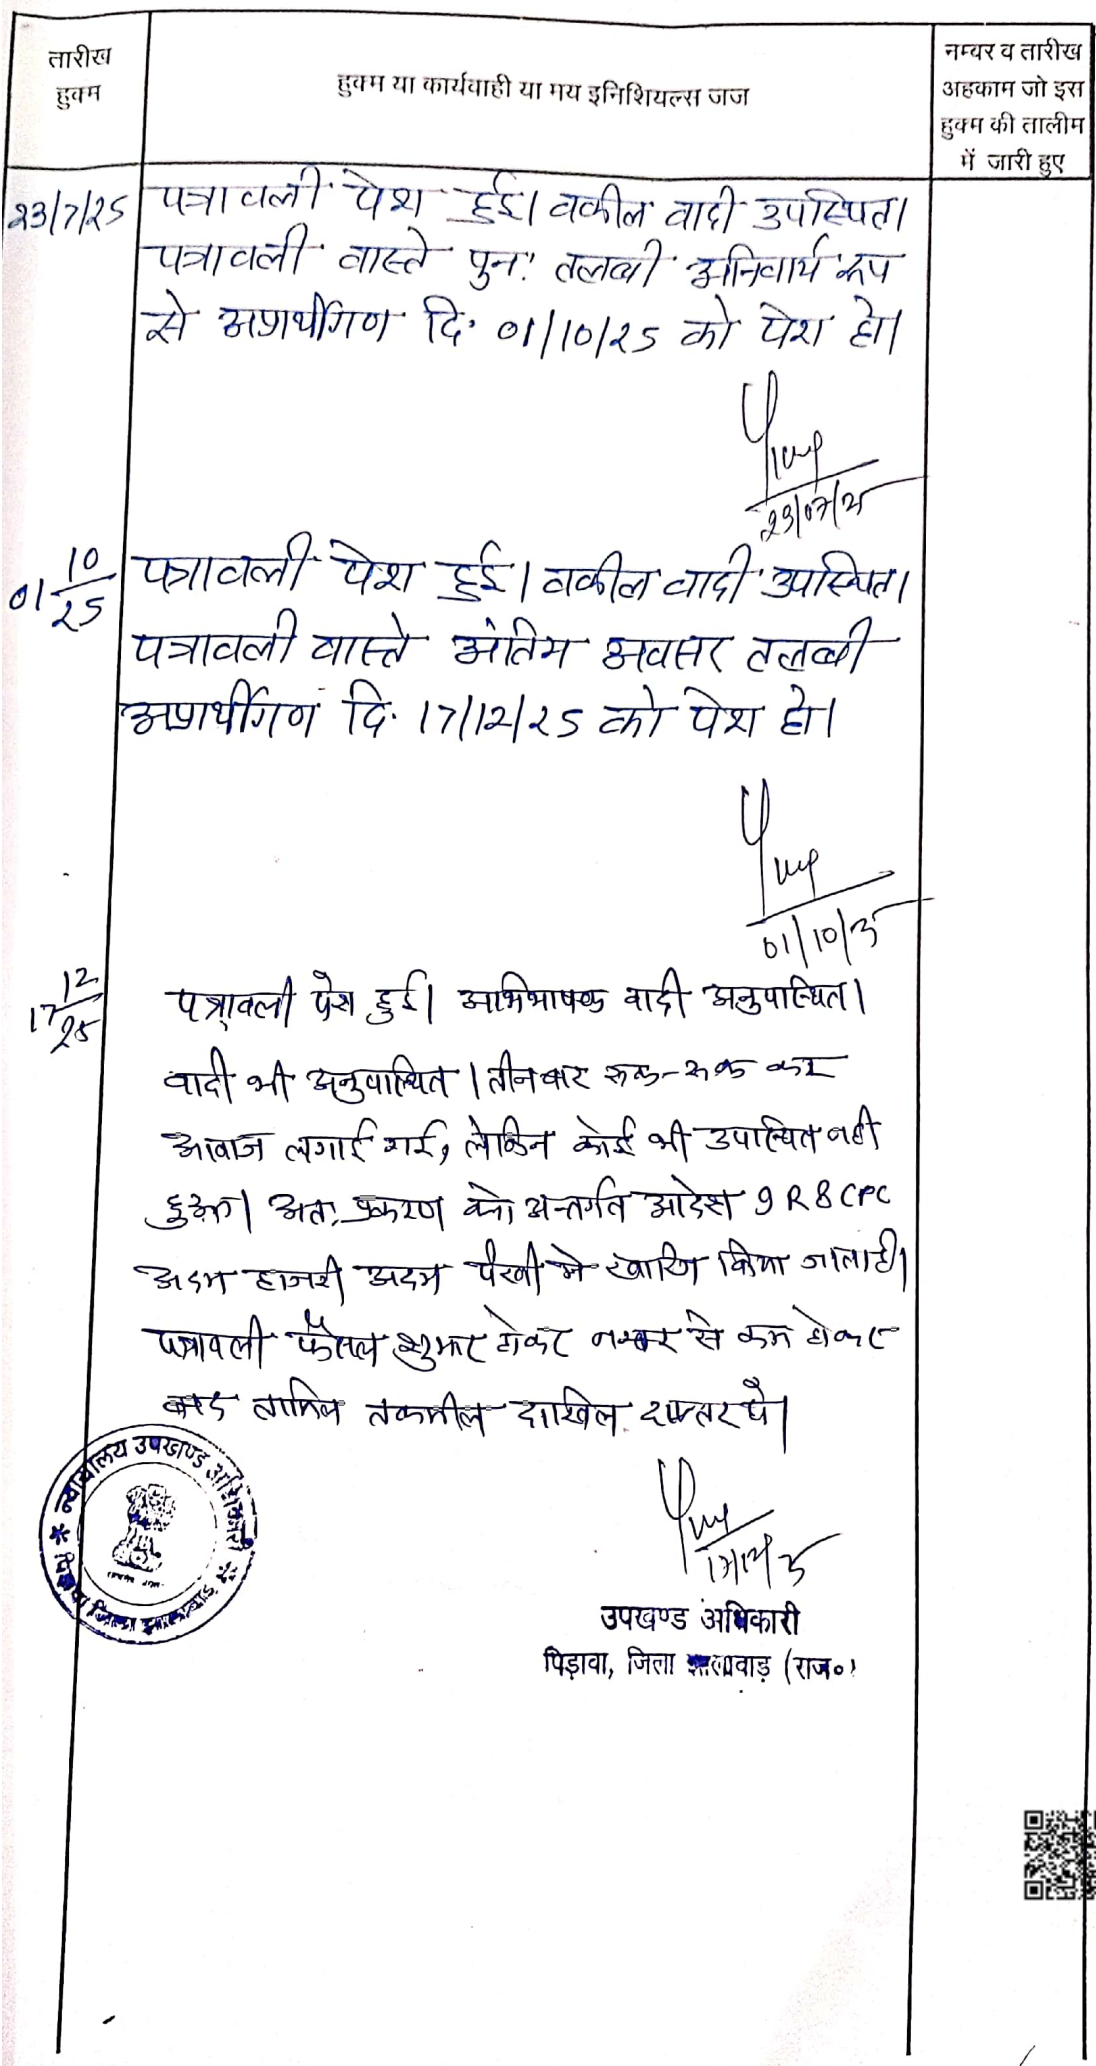 तारीख
हुक्म
हुक्म या कार्यवाही या मय इनिशियल्स जज
नम्बर व तारीख
अहकाम जो इस
हुक्म की तालीम
में जारी हुए
23/7/25 पत्रावली पेश हुई। वकील वादी उपस्थित।
पत्रावली वास्ते पुनः तलबी अनिवार्य रूप
से अप्रार्थीगण दि. 01/10/25 को पेश हो।
23/07/25
01/10/25 पत्रावली पेश हुई। वकील वादी उपस्थित।
पत्रावली वास्ते अंतिम अवसर तलबी
अप्रार्थीगण दि. 17/12/25 को पेश हो।
01/10/25
17/12/25 पत्रावली पेश हुई। अभिभाषक वादी अनुपस्थित।
वादी भी अनुपस्थित। तीन बार रूक-रूक कर
आवाज लगाई गई, लेकिन कोई भी उपस्थित नही
हुआ। अतः प्रकरण को अन्तर्गत आदेश 9 R 8 CPC
अदम हाजरी अदम पैरवी मे खारिज किया जाता है।
पत्रावली फैसल शुमार होकर नम्बर से कम होकर
बाद तामिल तकमील दाखिल दफ्तर पै।
न्यायालय उपखण्ड अधिकारी
पिड़ावा जिला झालावाड़
17/12/25
उपखण्ड अधिकारी
पिड़ावा, जिला झालावाड़ (राज०)